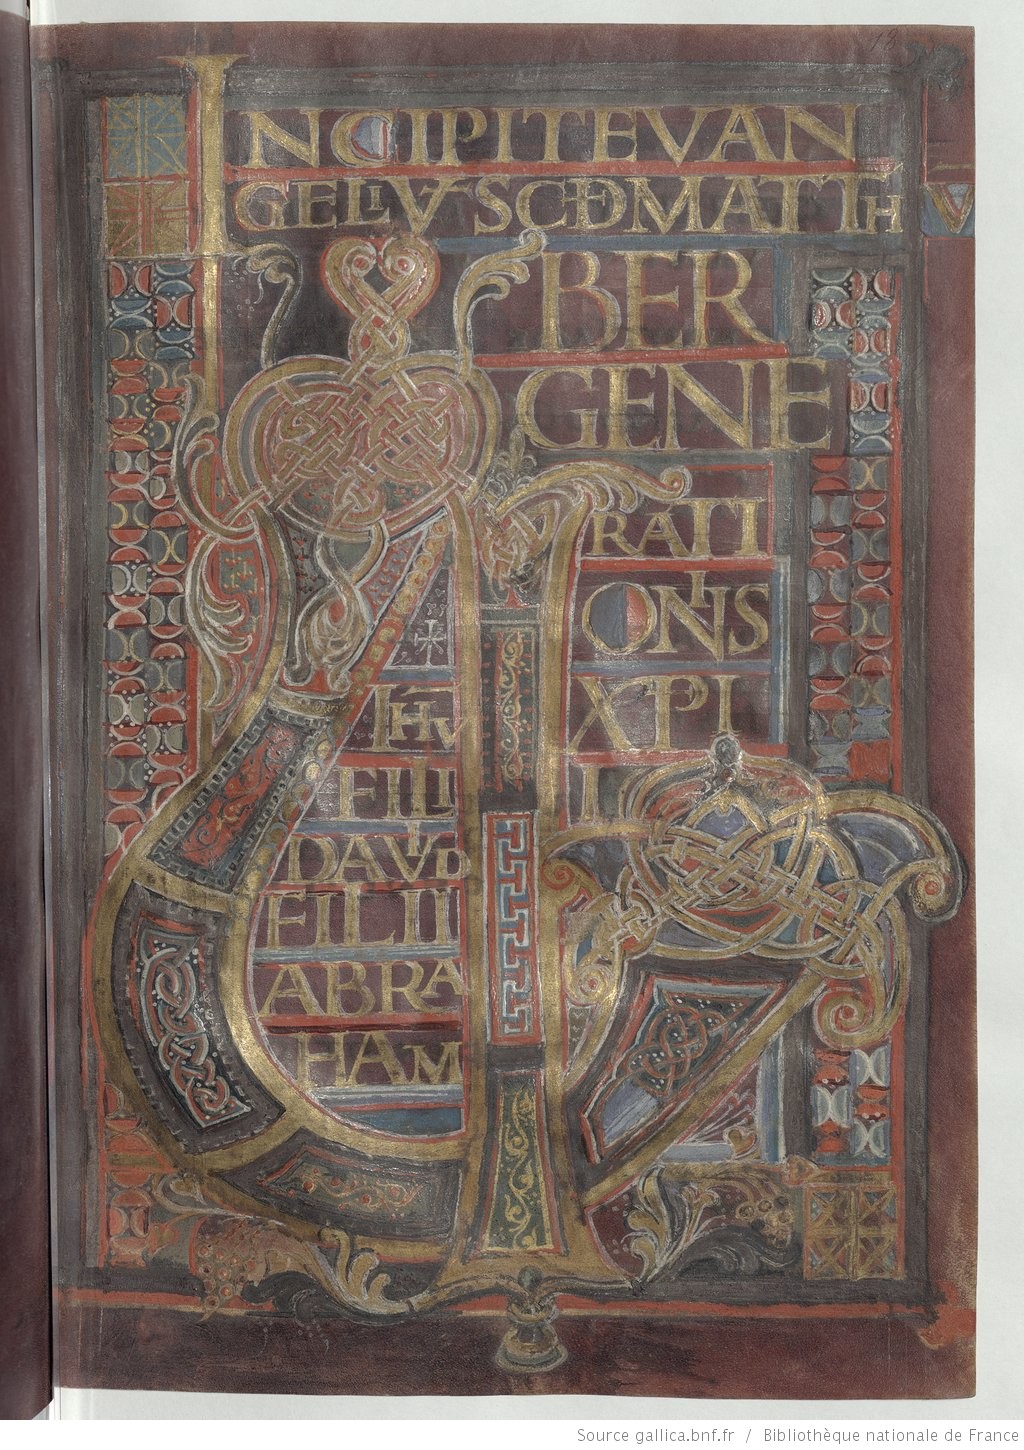 18
INCIPIT EVAN
GELIU SCD MATTH
LIBER
GENE
RATI
ONIS
IHU XPI
FILII
DAVID
FILII
ABRA
HAM
Source gallica.bnf.fr / Bibliothèque nationale de France